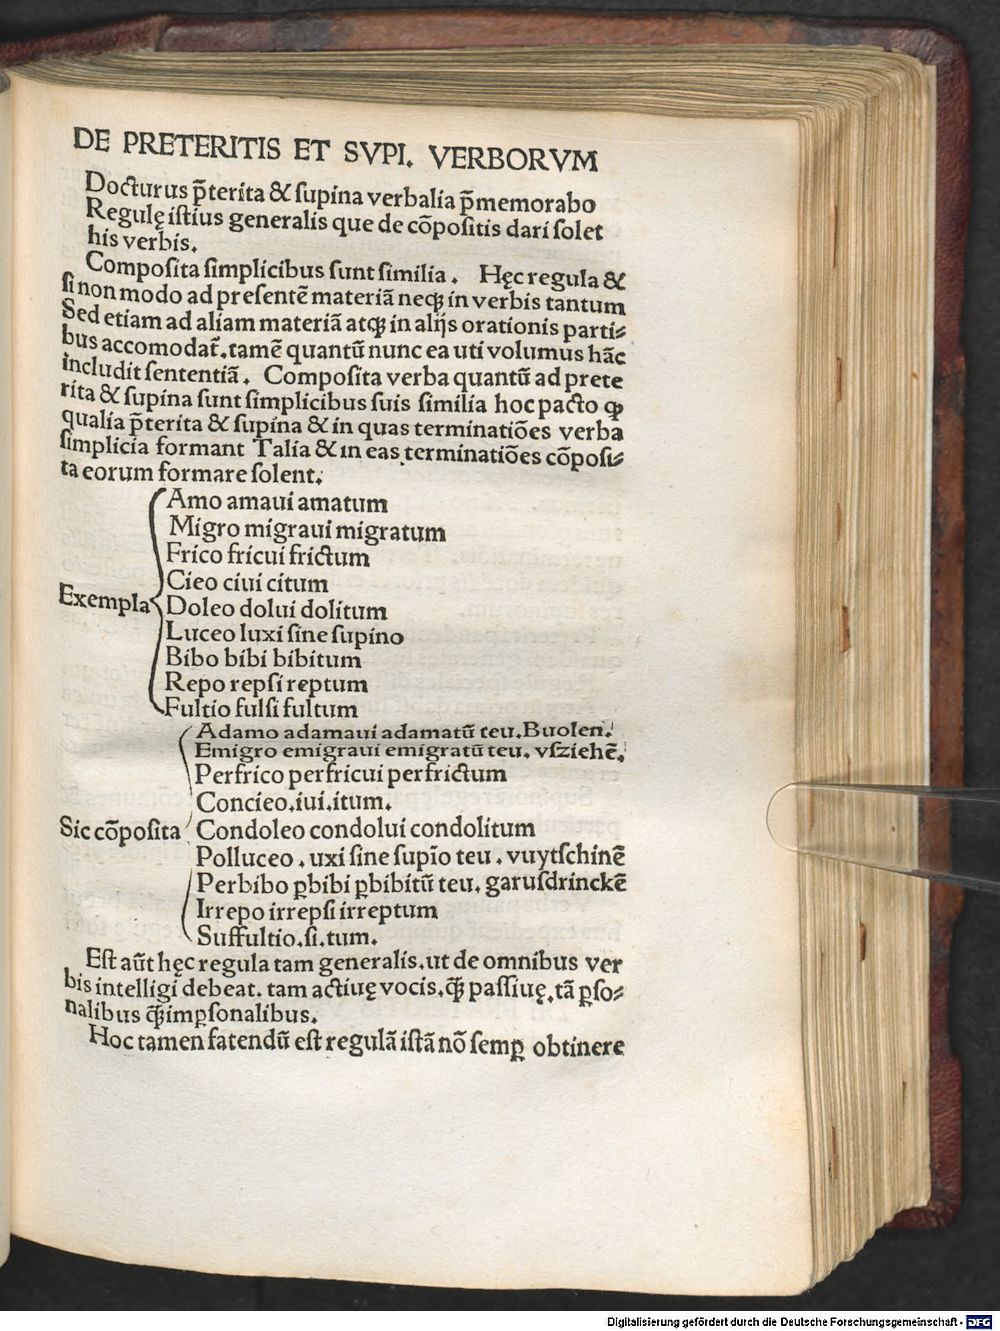 DE PRETERITIS ET SVPI. VERBORVM
Docturus p̄terita & ſupina verbalia p̄memorabo
Regulę iſtius generalis que de cōpoſitis dari ſolet
his verbis.
Compoſita ſimplicibus ſunt ſimilia. Hęc regula &
ſi non modo ad preſentē materiā neqꝫ in verbis tantum
Sed etiam ad aliam materiā atqꝫ in alijs orationis parti⸗
bus accomodat᷑. tamē quantū nunc ea uti volumus hāc
includit ſententiā. Compoſita verba quantū ad prete
rita & ſupina ſunt ſimplicibus ſuis ſimilia hoc pacto ꝙ
qualia p̄terita & ſupina & in quas terminatiōes verba
ſimplicia formant Talia & in eas terminatiōes cōpoſi⸗
ta eorum formare ſolent.
Amo amaui amatum
Migro migraui migratum
Frico fricui frictum
Cieo ciui citum
Exempla Doleo dolui dolitum
Luceo luxi ſine ſupino
Bibo bibi bibitum
Repo repſi reptum
Fultio fulſi fultum
Adamo adamaui adamatū teu. Buolen.
Emigro emigraui emigratū teu. vſziehē.
Perfrico perfricui perfrictum
Concieo. iui. itum.
Sic cōpoſita Condoleo condolui condolitum
Polluceo. uxi ſine ſupīo teu. vuytſchinē
Perbibo ꝑbibi ꝑbibitū teu. garuſdrinckē
Irrepo irrepſi irreptum
Suffultio. ſi. tum.
Eſt aūt hęc regula tam generalis. ut de omnibus ver
bis intelligi debeat. tam actiuę vocis. qꝫ̄ paſſiuę. tā ꝑſo⸗
nalibus qꝫ̄ imꝑſonalibus.
Hoc tamen fatendū eſt regulā iſtā nō ſemꝑ obtinere
Digitalisierung gefördert durch die Deutsche Forschungsgemeinschaft - DFG